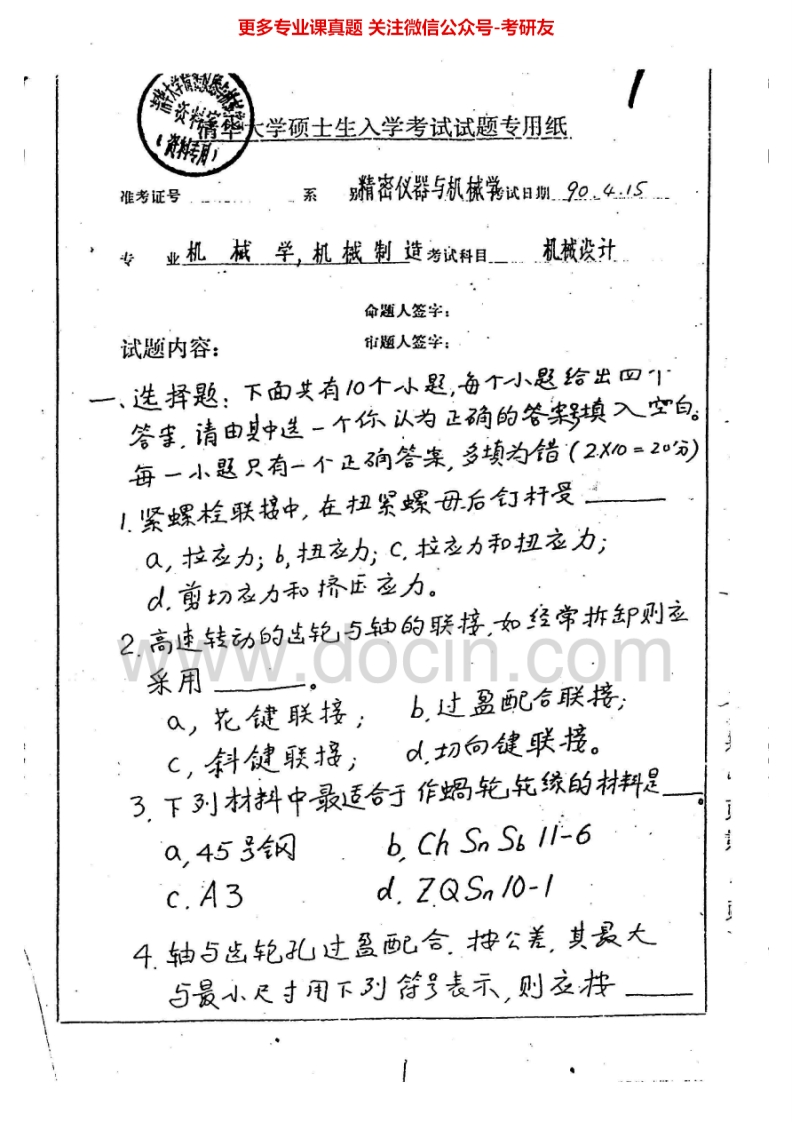 更多专业课真题 关注微信公众号-考研友
1
资料室
(资料专用)
清华大学硕士生入学考试试题专用纸
准考证号 系 别 精密仪器与机械学 考试日期 90.4.15
专 业 机 械 学,机 械 制 造 考试科目 机械设计
命题人签字:
试题内容: 审题人签字:
一、选择题: 下面共有10个小题,每个小题给出四个
答案,请由其中选一个你认为正确的答案号填入空白。
每一小题只有一个正确答案,多填为错(2X10=20分)
1.紧螺栓联接中,在扭紧螺母后钉杆受______
a,拉应力; b,扭应力; c.拉应力和扭应力;
d.剪切应力和挤压应力。
2.高速转动的齿轮与轴的联接,如经常拆卸则应
www.docin.com
采用______。
a,花键联接; b,过盈配合联接;
c,斜键联接; d.切向键联接。
3.下列材料中最适合于作蜗轮轮缘的材料是___。
a,45号钢 b,Ch Sn Sb 11-6
c.A3 d.ZQSn10-1
4.轴与齿轮孔过盈配合.按公差,其最大
与最小尺寸用下列符号表示,则应按______
1